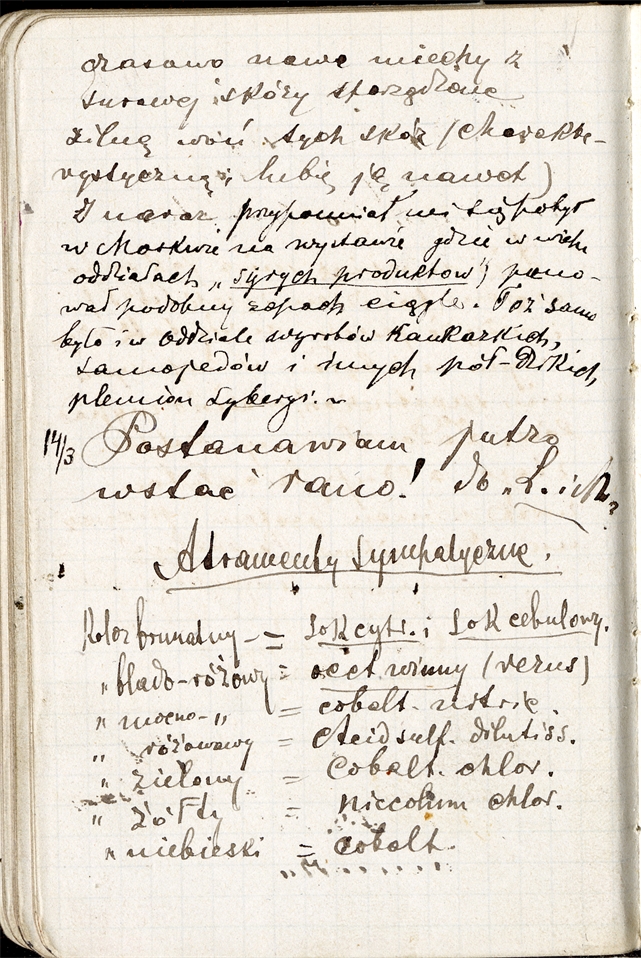 czasowo nowe miechy z
surowej skóry sporządzone
silną woń tych skór (charakte-
rystyczną; lubię ją nawet)
I naraz przypomniał mi się pobyt
w Moskwie na wystawie gdzie w wielu
oddziałach „syrych produktow"; pano-
wał podobny zapach ciągle. Toż samo
było i w oddziele wyrobów Kaukazkich,
Samojedów i innych pół-dzikich
plemion Syberyi.
14/3 Postanawiam jutro
wstać rano! do „L.
Atramenty sympatyczne.
Kolor brunatny - = Sok cytr. i Sok cebulowy.
„ blado-różowy = ocet winny (verus)
„ mocno- „ = cobalt. nitric.
„ różowawy = Acid sulf. dilutiss.
„ zielony = Cobalt. chlor.
„ żółty = niccolum chlor.
„ niebieski = cobalt.